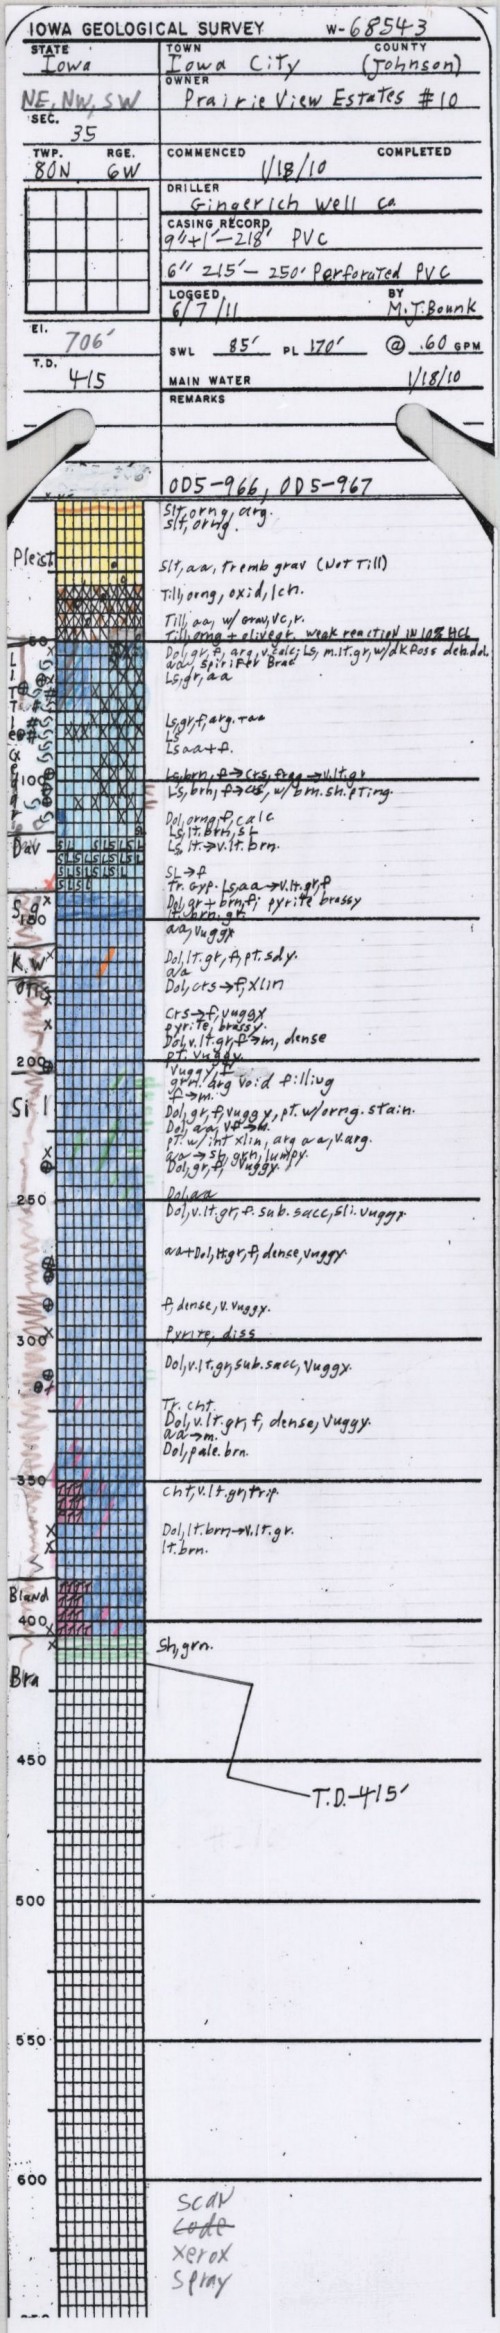 IOWA GEOLOGICAL SURVEY W-68543
STATE TOWN COUNTY
Iowa Iowa City (Johnson)
OWNER
NE, NW, SW Prairie View Estates #10
SEC.
35
TWP. RGE. COMMENCED COMPLETED
80N 6W 1/18/10
DRILLER
Gingerich Well Co
CASING RECORD
9"+1'-218' PVC
6" 215'-250' Perforated PVC
LOGGED BY
6/7/11 M.J.Bounk
El. 706'
SWL 85' PL 170' @ .60 GPM
T.D. 415
MAIN WATER 1/18/10
REMARKS
OD5-966, OD5-967
Slt, orng, arg.
slt, orng.
Pleist
Slt, aa, tremb grav (Not Till)
Till, orng, oxid, lch.
Till, aa, w/ Grav, vc, r.
Till, orng + olivegr. weak reaction IN 10% HCL
50
Dol, gr, f, arg, v.calc; Ls, m.lt.gr, w/dk foss deb. dol.
aa, Spirifer Brac
Ls, gr, aa
Little Cedar
Ls, gr, f, arg. + aa
Ls
Ls aa + f.
Ls, brn, f→crs, frag→v.lt.gr
100
Ls, brn, f→ , w/ brn. sh. pting.
Dol, orng, f, calc
Ls, lt. brn, SL
Dav
Ls, lt→v.lt. brn.
SL→f
Tr. Gyp. Ls, aa→v.lt.gr, f
S.g
Dol, gr + brn, f; pyrite brassy
lt. brn. gr.
150
aa, vuggy
K.W
Dol, lt. gr, f, pt. sdy.
aa
Otis
Dol, crs→f, xlin
Crs→f, vuggy
pyrite, brassy.
Dol, v.lt.gr, f→m, dense
pt. vuggy.
200
Vuggy, f
grn. arg void filling
f→m.
Sil
Dol, gr, f, vuggy, pt. w/orng. stain.
Dol, aa, vf→m.
pt. w/int xlin, arg aa, v.arg.
aa→sh, grn, lumpy.
Dol, gr, f, vuggy.
Dol, aa
250
Dol, v.lt.gr, f. sub. sacc, sli. vuggy
aa+Dol, lt.gr, f, dense, vuggy.
f, dense, v. vuggy.
Pyrite, diss
300
Dol, v.lt.gr, sub. sacc, vuggy.
Tr. cht.
Dol, v.lt.gr, f, dense, vuggy.
aa→m.
Dol, pale. brn.
350
cht, v.lt.gr, trip.
Dol, lt. brn→v.lt. gr.
lt. brn.
Bland
400
Sh, grn.
Bra
450
T.D.-415'
500
550
600
scan
code
xerox
Spray